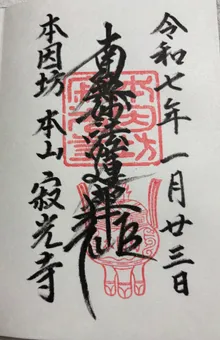 令和七年一月廿三日
南無妙法蓮華経
本因坊 本山 寂光寺
本因坊